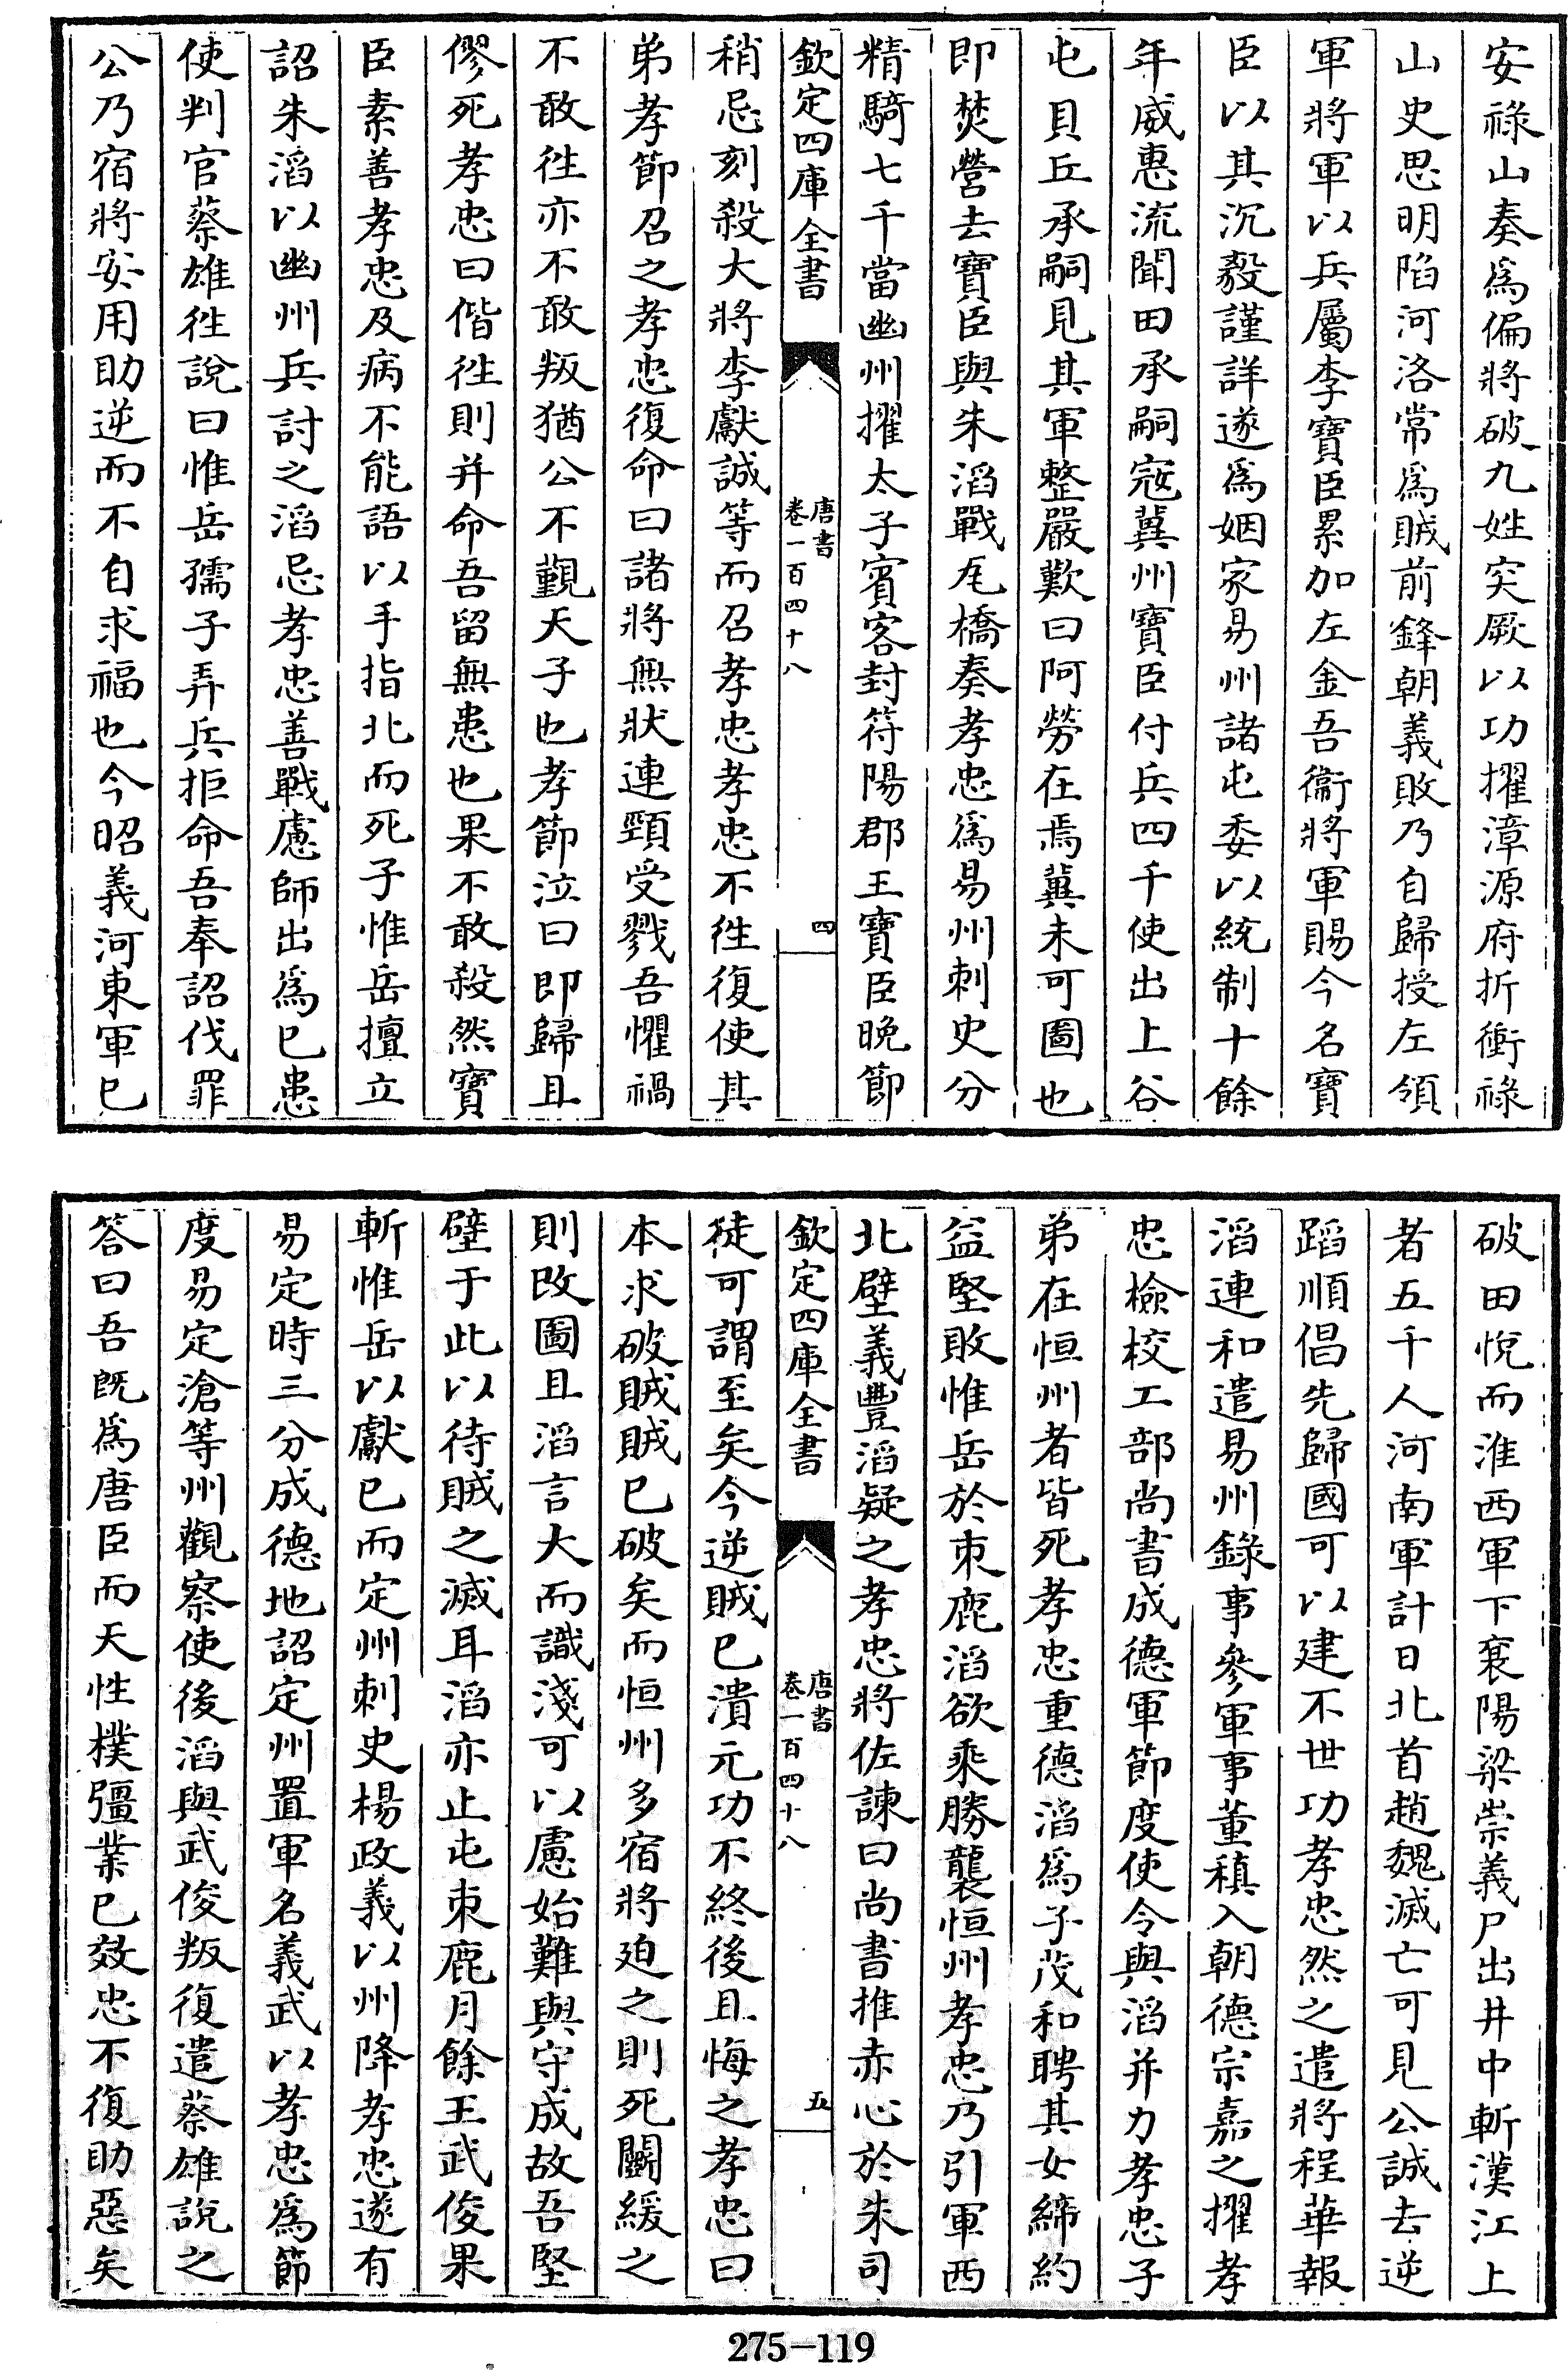 安祿山奏爲偏將破九姓突厥以功擢漳源府折衝祿
山史思明陷河洛常爲賊前鋒朝義敗乃自歸授左領
軍將軍以兵屬李寶臣累加左金吾衞將軍賜今名寶
臣以其沉毅謹詳遂爲姻家易州諸屯委以統制十餘
年威惠流聞田承嗣寇冀州寶臣付兵四千使出上谷
屯貝丘承嗣見其軍整嚴歎曰阿勞在焉冀未可圖也
即焚營去寶臣與朱滔戰瓦橋奏孝忠爲易州刺史分
精騎七千當幽州擢太子賓客封符陽郡王寶臣晚節
欽定四庫全書
唐書
卷一百四十八
四
稍忌刻殺大將李獻誠等而召孝忠孝忠不徃復使其
弟孝節召之孝忠復命曰諸將無狀連頸受戮吾懼禍
不敢徃亦不敢叛猶公不覲天子也孝節泣曰即歸且
僇死孝忠曰偕徃則并命吾留無患也果不敢殺然寶
臣素善孝忠及病不能語以手指北而死子惟岳擅立
詔朱滔以幽州兵討之滔忌孝忠善戰慮師出爲已患
使判官蔡雄徃說曰惟岳孺子弄兵拒命吾奉詔伐罪
公乃宿將安用助逆而不自求福也今昭義河東軍已
破田悅而淮西軍下襄陽梁崇義尸出井中斬漢江上
者五千人河南軍計日北首趙魏滅亡可見公誠去逆
蹈順倡先歸國可以建不世功孝忠然之遣將程華報
滔連和遣易州錄事參軍事董稹入朝德宗嘉之擢孝
忠檢校工部尚書成德軍節度使令與滔并力孝忠子
弟在恒州者皆死孝忠重德滔爲子茂和聘其女締約
益堅敗惟岳於束鹿滔欲乘勝襲恒州孝忠乃引軍西
北壁義豐滔疑之孝忠將佐諫曰尚書推赤心於朱司
欽定四庫全書
唐書
卷一百四十八
五
徒可謂至矣今逆賊已潰元功不終後且悔之孝忠曰
本求破賊賊已破矣而恒州多宿將廹之則死鬭緩之
則改圖且滔言大而識淺可以慮始難與守成故吾堅
壁于此以待賊之滅耳滔亦止屯束鹿月餘王武俊果
斬惟岳以獻已而定州刺史楊政義以州降孝忠遂有
易定時三分成德地詔定州置軍名義武以孝忠爲節
度易定滄等州觀察使後滔與武俊叛復遣蔡雄說之
答曰吾旣爲唐臣而天性樸彊業已效忠不復助惡矣
275—119